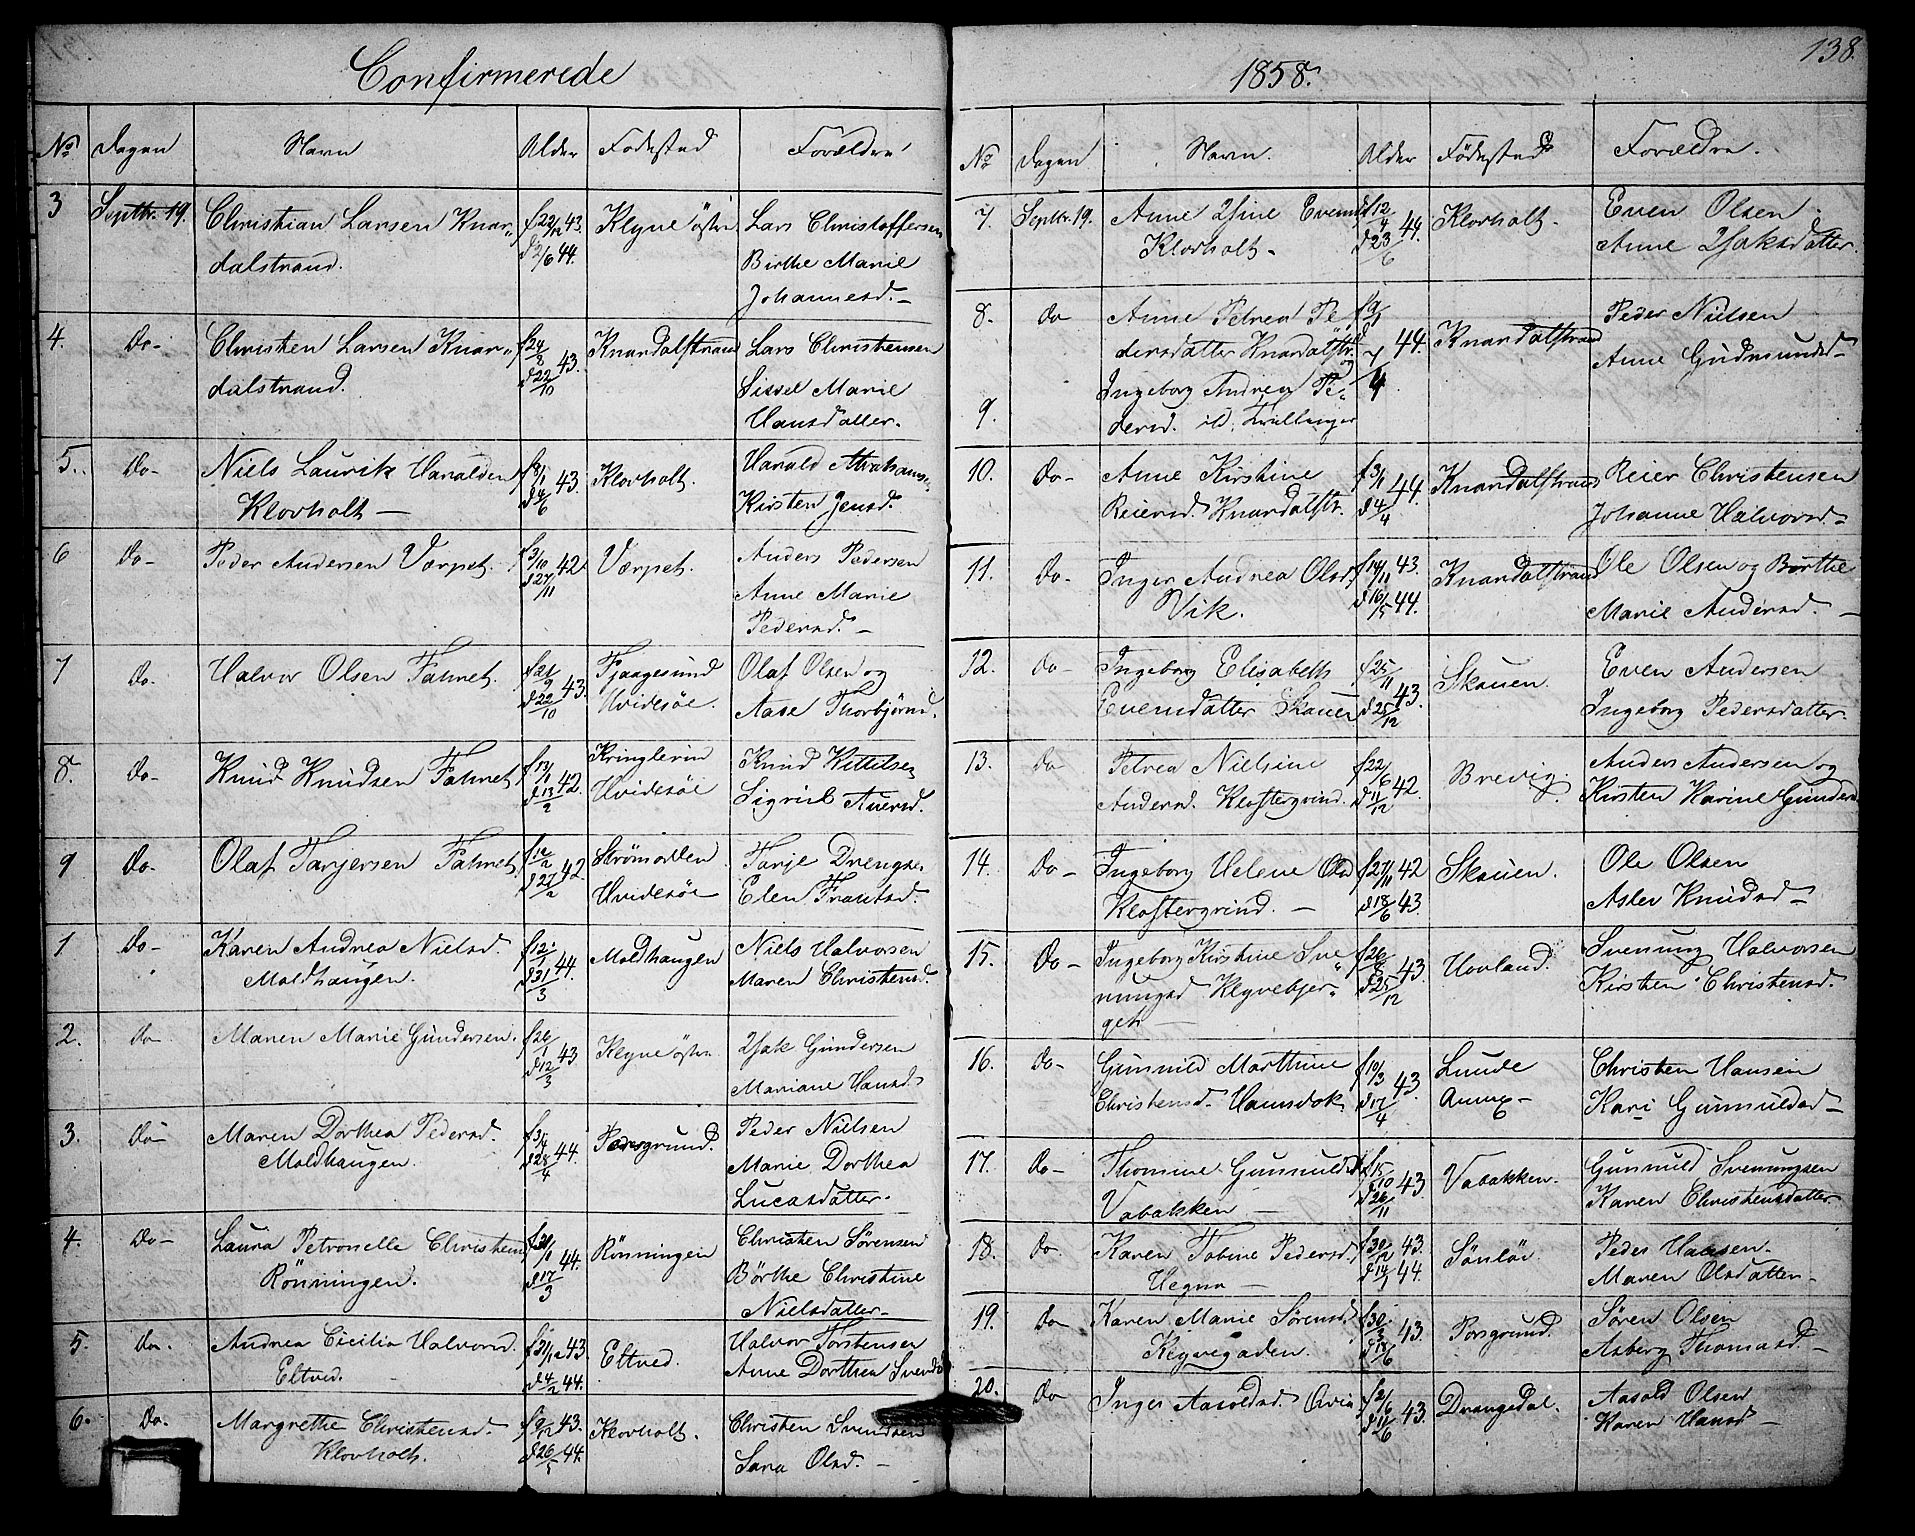 Confirmerede
No Dagen Navn Alder Fødested Forældre
3 Septbr. 19. Christian Larsen Knar- f 22/12 43. Klyve østre Lars Christoffersen
dalstrand. d 2/6 44. Birthe Marie
Johannesd. -
4. Do- Christen Larsen Knar- f 24/8 43. Knardalstrand Lars Christensen
dalstrand. d 22/10 Sissel Marie
Hansdatter.
5. Do- Niels Laurik Haralden f 8/1 43. Klovholt. Harald Abrahamsen
Klovholt - d 4/6 Kirsten Jensd.
6 Do- Peder Andersen Værpet. f 3/10 42 Værpet. Anders Pedersen
d 27/11 Anne Marie
Pedersd. -
7 Do. Halvor Olsen Fahnet. f 21/9 43. Fjaagesund Olaf Olsen og
d 22/10 Hvidesøe. Aase Thorbjørnd.
8. Do- Knud Knudsen Fahnet 42. Kringlerin Knud Kittilsen
d 13/2 Hvidesøe Sigrid
9 Do- Olaf Tarjersen Fahnet f 12/2 42 Strømodden Tarje Drengse.
d 27/2 Hvidesøe Elen
1 Do- Karen Andrea Nielsd. f 12/1 44. Moldhaugen Niels Halvorsen
Moldhaugen. d 31/3 Maren Christensd.
2. Do Maren Marie Gundersen. f 26/1 43 Klyve østre Isak Gundersen
d 12/3 Mariane Hansd.
3. Do- Maren Dorthea Pedersd. f 3/4 44. Porsgrund. Peder Nielsen
Moldhaugen. d 28/4 Marie Dorthea
Lucasdatter.
4. Do- Laura Petronelle Christensd 44. Rønningen Christen Sørensen
Rønningen. d 17/3 Børthe Christine
Nielsdatter-
5. Do. Andrea Cicilia Halvorsd. f 31/12 43 Eltved. Halvor Torstensen
Eltved. d 4/2 44. Anne Dorthea Svendsd
6. Do. Margrethe Christensd. f 9/12 43. Klovholt. Christen Svendsen
Klovholt. d 26/5 44. Sara Olsd. -
1858. 138.
No Dagen Navn. Alder Fødested Forældre.
7. Septbr. 19. Anne Isine Evensd f 12/4 44. Klovholt. Even Olsen
Klovholt - d 23/6 Anne Isaksdatter.
8. Do Anne Petrea Pe- f 9/1 44. Knardalstrand Peder Nielsen
dersdatter Knardalstr. d 7/4 Anne Gudmundsd-
og
9. Ingeborg Andrea Pe-
dersd. Tvillinger
10. Do- Anne Kirstine f 3/1 44. Knardalstrand Reier Christensen
Reiersd. Knardalstr. d 4/4 Johanne Halvorsd-
11. Do- Inger Andrea Olsd. f 14/11 43. Knardalstrand Ole Olsen og Børthe
Vik. d 16/5 44. Marie Andersd. -
12. Do- Ingeborg Elisabeth f 25/11 43. Skauen. Even Andersen
Evensdatter Skauen d 25/12 Ingeborg Pedersdatter.
13. Do Petrea Nielsine f 22/6 42. Brevig. Anders Andersen og
Andersd. Klostergrind. d 11/12 Kirsten Karine Gunders
14. Do- Ingeborg Helene Olsd f 27/11 42 Skauen. Ole Olsen
Klostergrind. - d 18/6 43. Aslev Knudsd-
15. Do- Ingeborg Kirstine Sve f 26/8 43. Hovland. Svenung Halvorsen
nungsd Klyvebjer- d 25/12 Kirsten Christensd.
get -
16. Do- Gunnild Marthine f 10/3 43. Lunde Christen Hansen
Christensd. d 17/4 Annex- Kari Gunnuldsd-
17. Do- Thomine Gunnuldsd f 15/10 43. Vabakken. Gunnuld Svenungsen
Vabakken - d 26/11 Karen Christensdatter
18. Do. Karen Tobine Pedersd. f 30/12 43. Peder Hansen.
Hegna - d 14/1 44. Maren Olsdatter-
19. Do- Karen Marie Sørensd. f 30/3 43. Porsgrund. Søren Olsen
Klyvegaden. d 18/6 Asberg Thomasd-
20. Do Inger Aasoldsd. f 2/6 43. Drangedal. Aasold Olsen
d 11/6 Karen Hansd-